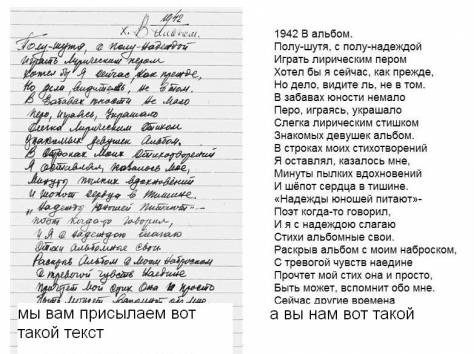 1942
х. В альбом.
Полу-шутя, с полу-надеждой
Играть лирическим пером
Хотел бы я сейчас, как прежде,
Но дело, видите ль, не в том.
В забавах юности не мало
Перо, играясь, украшало
Слегка лирическим стихом
Знакомых девушек альбом.
В строках моих стихотворений
Я оставлял, казалось мне,
Минуты пылких вдохновений
И шопот сердца в тишине.
"Надежды юношей питают"-
поэт когда-то говорил,
И я с надеждою слагаю
Стихи альбомные свои
Раскрыв альбом с моим наброском
С тревогой чувств наедине
Прочтет мой стих она и просто
Быть может, вспомнит обо мне
мы вам присылаем вот
такой текст
1942 В альбом.
Полу-шутя, с полу-надеждой
Играть лирическим пером
Хотел бы я сейчас, как прежде,
Но дело, видите ль, не в том.
В забавах юности немало
Перо, играясь, украшало
Слегка лирическим стишком
Знакомых девушек альбом.
В строках моих стихотворений
Я оставлял, казалось мне,
Минуты пылких вдохновений
И шёпот сердца в тишине.
«Надежды юношей питают»-
Поэт когда-то говорил,
И я с надеждою слагаю
Стихи альбомные свои.
Раскрыв альбом с моим наброском,
С тревогой чувств наедине
Прочтет мой стих она и просто,
Быть может, вспомнит обо мне.
Сейчас другие времена
а вы нам вот такой